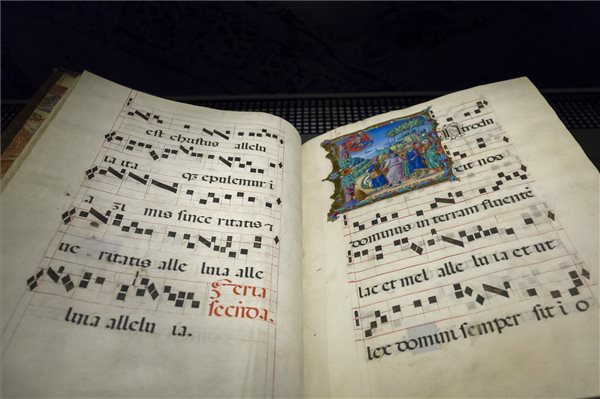 est christus allelu
ia ita qʒ epulemur i
a zi mis since ritatis ꝛ
ue ritatis alle luia alle
luia allelu ia.
Feria
secūda.
Introdu
xit uos
dominus in terram fluentē
lac et mel alle lu ia et ut
lex domini semper sit i o